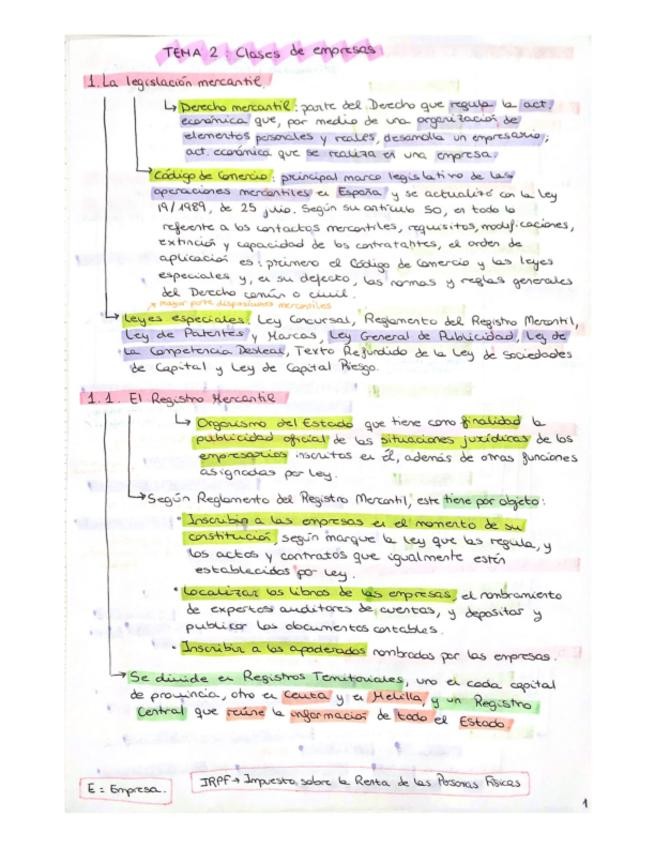 TEMA 2: Clases de empresas
1. La legislación mercantil.
↳ Derecho mercantil: parte del Derecho que regula la act.
económica que, por medio de una organización de
elementos personales y reales, desarrolla un empresario;
act. económica que se realiza en una empresa.
Código de Comercio: principal marco legislativo de las
operaciones mercantiles en España y se actualizó con la Ley
19/1989, de 25 julio. Según su artículo 50, en todo lo
referente a los contactos mercantiles, requisitos, modificaciones,
extinción y capacidad de los contratantes, el orden de
aplicación es: primero el Código de Comercio y las leyes
especiales y, en su defecto, las normas y reglas generales
del Derecho común o civil.
mayor parte disposiciones mercantiles
Leyes especiales: Ley Concursal, Reglamento del Registro Mercantil,
Ley de Patentes y Marcas, Ley General de Publicidad, Ley de
la Competencia Desleal, Texto Refundido de la Ley de Sociedades
de Capital y Ley de Capital Riesgo.
1.1. El Registro Mercantil
↳ Organismo del Estado que tiene como finalidad la
publicidad oficial de las situaciones jurídicas de los
empresarios inscritos en él, además de otras funciones
asignadas por ley.
→ Según Reglamento del Registro Mercantil, este tiene por objeto:
• Inscribir a las empresas en el momento de su
constitución, según marque la ley que las regula, y
los actos y contratos que igualmente estén
establecidos por ley.
• Localizar los libros de las empresas, el nombramiento
de expertos auditores de cuentas, y depositar y
publicar los documentos contables.
• Inscribir a los apoderados nombrados por las empresas.
→ Se divide en Registros Territoriales, uno en cada capital
de provincia, otro en Ceuta y en Melilla, y un Registro
Central que reúne la información de todo el Estado
E = Empresa.
IRPF → Impuesto sobre la Renta de las Personas Físicas
1